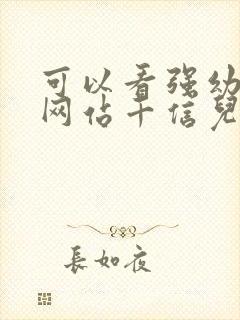 可以看强幼
网佔十信兒
長如夜